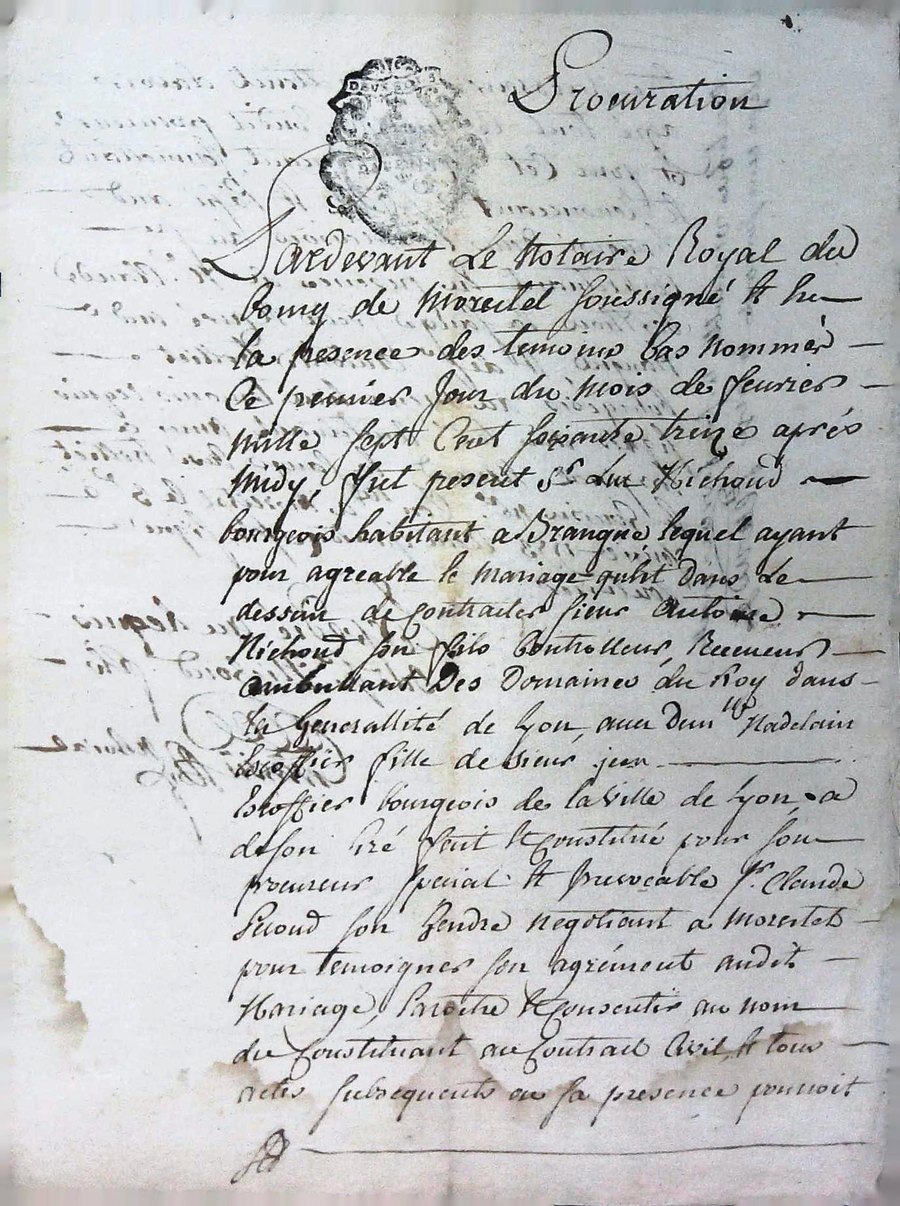 DEUX SOLS
Procuration
Pardevant Le Notaire Royal du
bourg de Morestel soussigné et En
la presence des temoins bas nommér
Ce premier Jour du mois de fevrier
mille sept Cent soixante treize aprés
midy, fut present Sr. Luc Michoud
bourgeois habitant a Brangue lequel ayant
pour agreable le mariage quhit dans Le
dessein de Contracter sieur Antoine
Michoud son fils Controlleur, Receveur
ambullant Des Domaines du Roy dans
la Generallité de Lyon, avec Dem.lle Madelain
Escoffier fille de sieur jean
Escoffier bourgeois de la Ville de Lyon, a
de son Gré fait et Constitué pour son
procureur special et Irrevocable Sr. Claude
son Gendre negotiant a Morestel
pour temoigner son agrément audit
Mariage, Paroitre et Consentir au nom
du Constituant au Contract Civil, et tous
actes subsequents ou sa presence pourroit